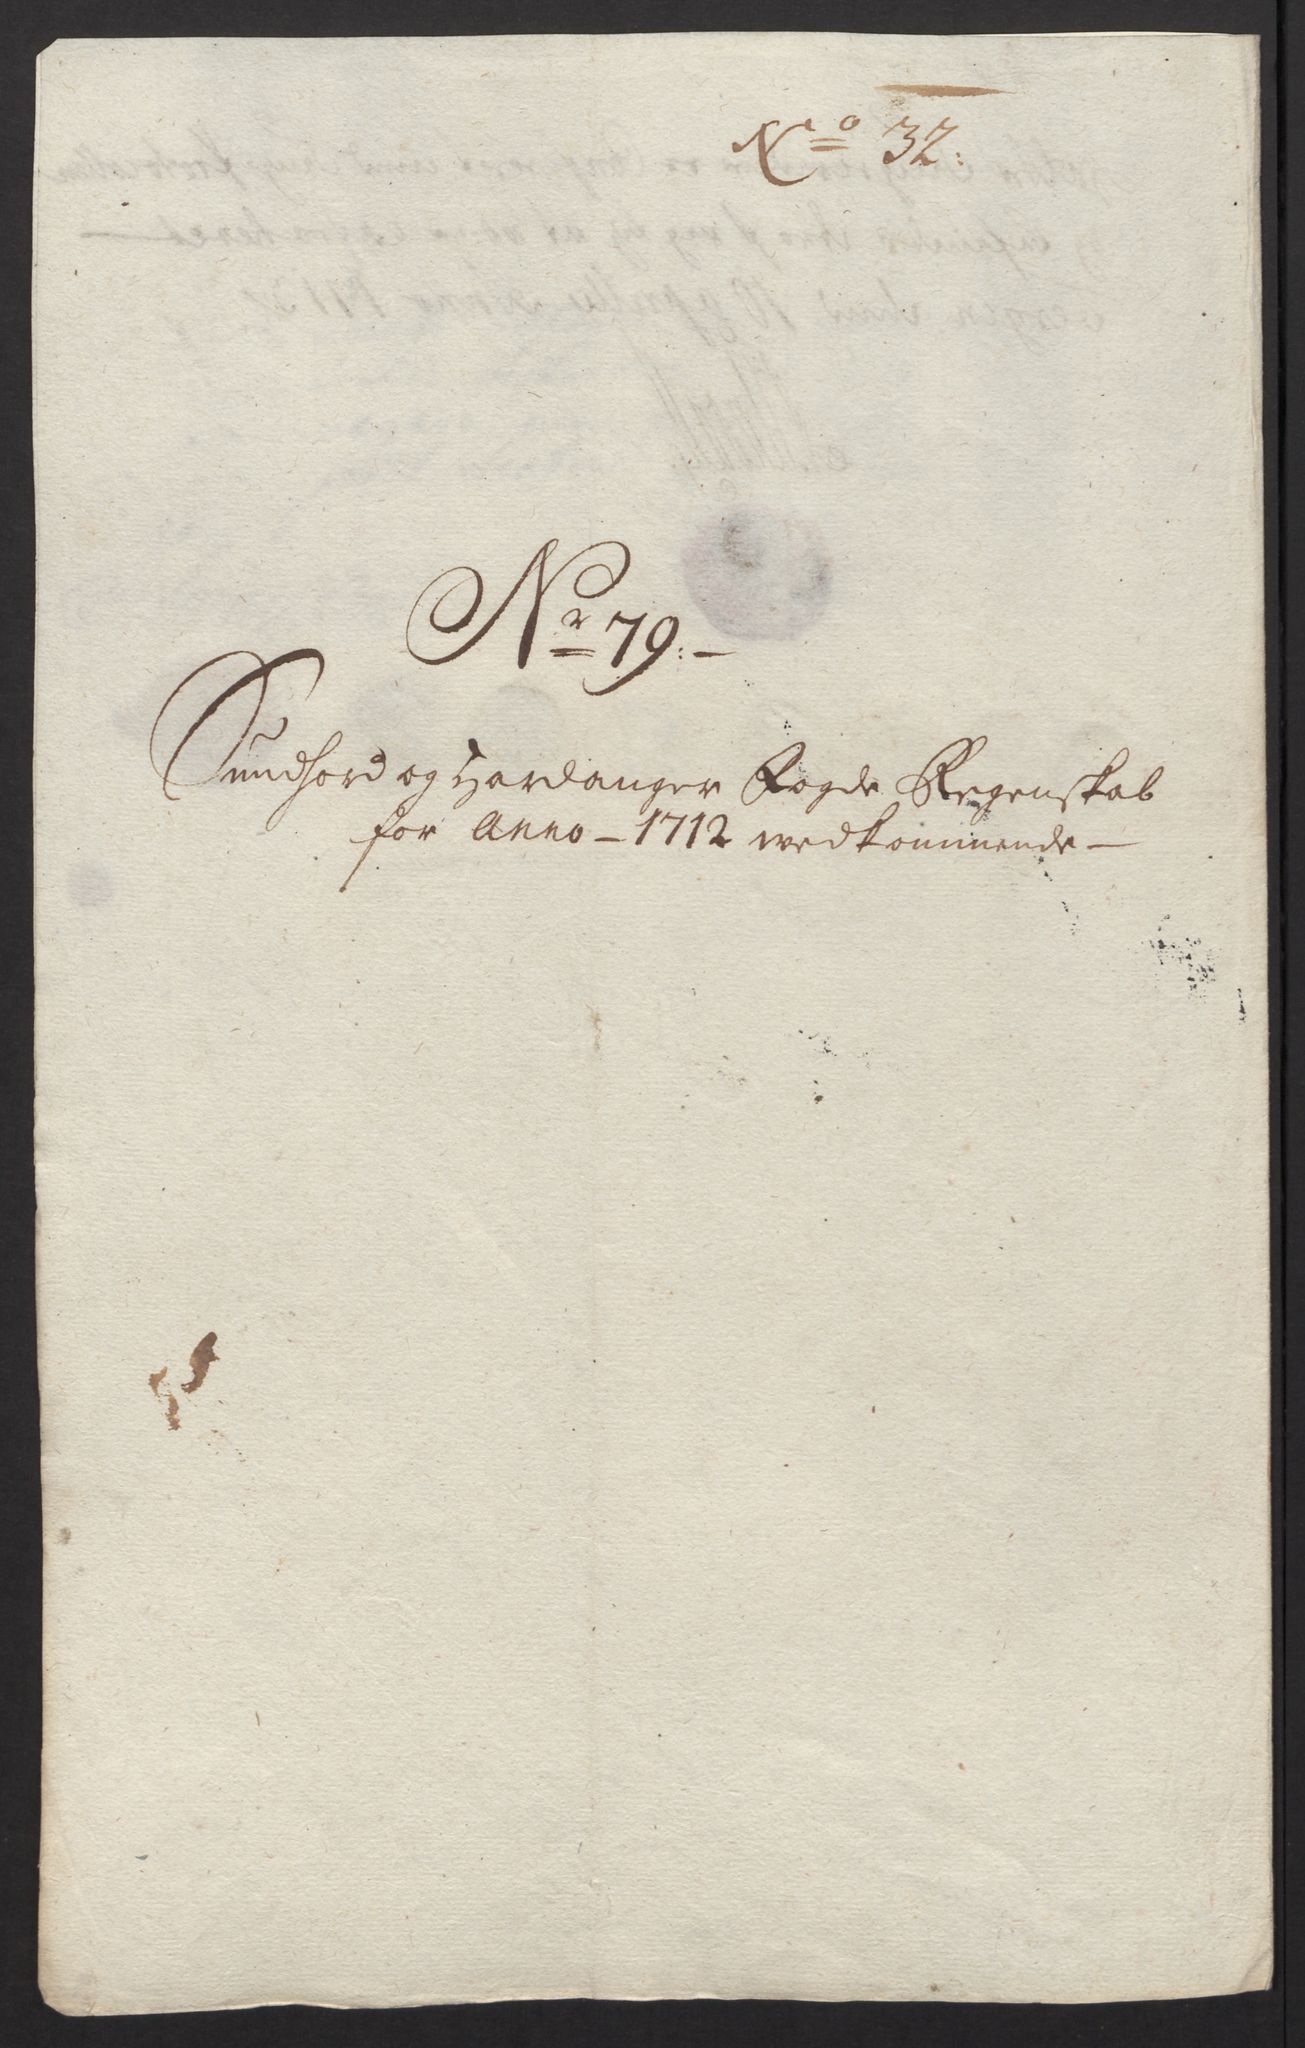 No 32:
Nr 79:-
Sundhord og Hardanger Fogde Regenskab
for Anno - 1712 wedkommende -